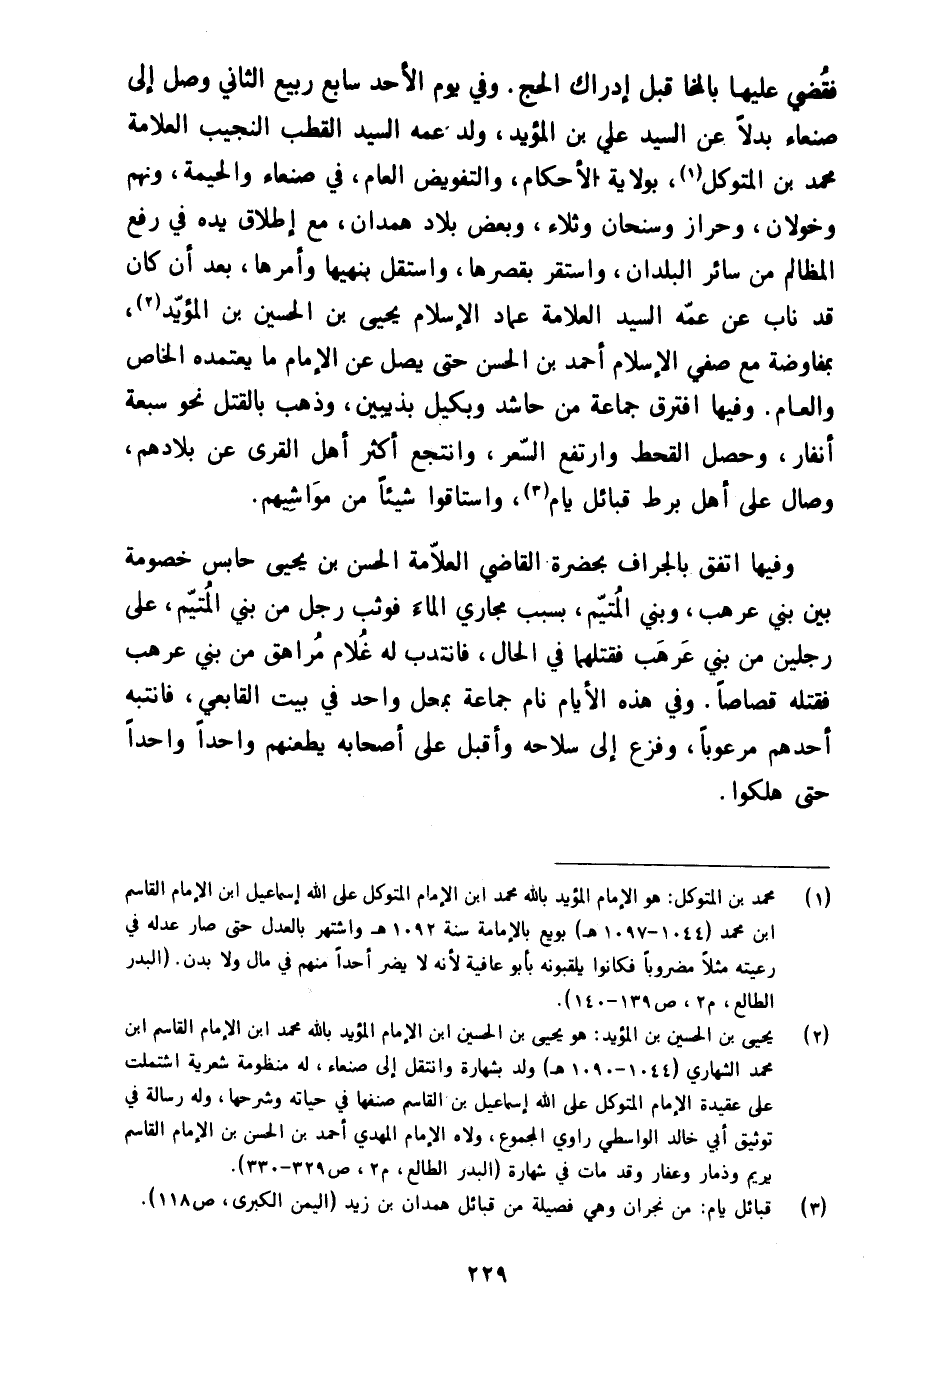 فقُضي عليها بالمخا قبل إدراك الحج. وفي يوم الأحد سابع ربيع الثاني وصل إلى
صنعاء بدلاً عن السيد علي بن المؤيد، ولد عمه السيد القطب النجيب العلامة
محمد بن المتوكل(١)، بولاية الأحكام، والتفويض العام، في صنعاء والحيمة، ونهم
وخولان، وحراز وسنحان وثلاء، وبعض بلاد همدان، مع إطلاق يده في رفع
المظالم من سائر البلدان، واستقر بقصرها، واستقل بنهيها وأمرها، بعد أن كان
قد ناب عن عمّه السيد العلامة عماد الإسلام يحيى بن الحسين بن المؤيّد(٢)،
بمفاوضة مع صفي الإسلام أحمد بن الحسن حتى يصل عن الإمام ما يعتمده الخاص
والعام. وفيها افترق جماعة من حاشد وبكيل بذيبين، وذهب بالقتل نحو سبعة
أنفار، وحصل القحط وارتفع السّعر، وانتجع أكثر أهل القرى عن بلادهم،
وصال على أهل برط قبائل يام(٣)، واستاقوا شيئاً من موَاشِيهم.
وفيها اتفق بالجراف بحضرة القاضي العلاّمة الحسن بن يحيى حابس خصومة
بين بني عرهب، وبني المُتيّم، بسبب مجاري الماء فوثب رجل من بني المُتيّم، على
رجلين من بني عَرهَب فقتلهما في الحال، فانتدب له غُلام مُراهق من بني عرهب
فقتله قصاصاً. وفي هذه الأيام نام جماعة بمحل واحد في بيت القابعي، فانتبه
أحدهم مرعوباً، وفزع إلى سلاحه وأقبل على أصحابه يطعنهم واحداً واحداً
حتى هلكوا.
(١) محمد بن المتوكل: هو الإمام المؤيد بالله محمد ابن الإمام المتوكل على الله إسماعيل ابن الإمام القاسم
ابن محمد (١٠٤٤-١٠٩٧ هـ) بويع بالإمامة سنة ١٠٩٢ هـ واشتهر بالعدل حتى صار عدله في
رعيته مثلاً مضروباً فكانوا يلقبونه بأبو عافية لأنه لا يضر أحداً منهم في مال ولا بدن. (البدر
الطالع، م٢، ص١٣٩-١٤٠).
(٢) يحيى بن الحسين بن المؤيد: هو يحيى بن الحسين ابن الإمام المؤيد بالله محمد ابن الإمام القاسم ابن
محمد الشهاري (١٠٤٤-١٠٩٠ هـ) ولد بشهارة وانتقل إلى صنعاء، له منظومة شعرية اشتملت
على عقيدة الإمام المتوكل على الله إسماعيل بن القاسم صنفها في حياته وشرحها، وله رسالة في
توثيق أبي خالد الواسطي راوي المجموع، ولاه الإمام المهدي أحمد بن الحسن بن الإمام القاسم
بريم وذمار وعفار وقد مات في شهارة (البدر الطالع، م٢، ص٣٢٩-٣٣٠).
(٣) قبائل يام: من نجران وهي فصيلة من قبائل همدان بن زيد (اليمن الكبرى، ص١١٨).
٢٢٩